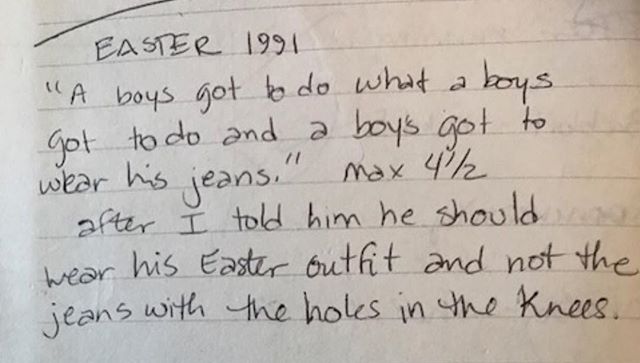 EASTER 1991
"A boys got to do what a boys
got to do and a boy's got to
wear his jeans." max 4 1/2
after I told him he should
wear his Easter outfit and not the
jeans with the holes in the knees.